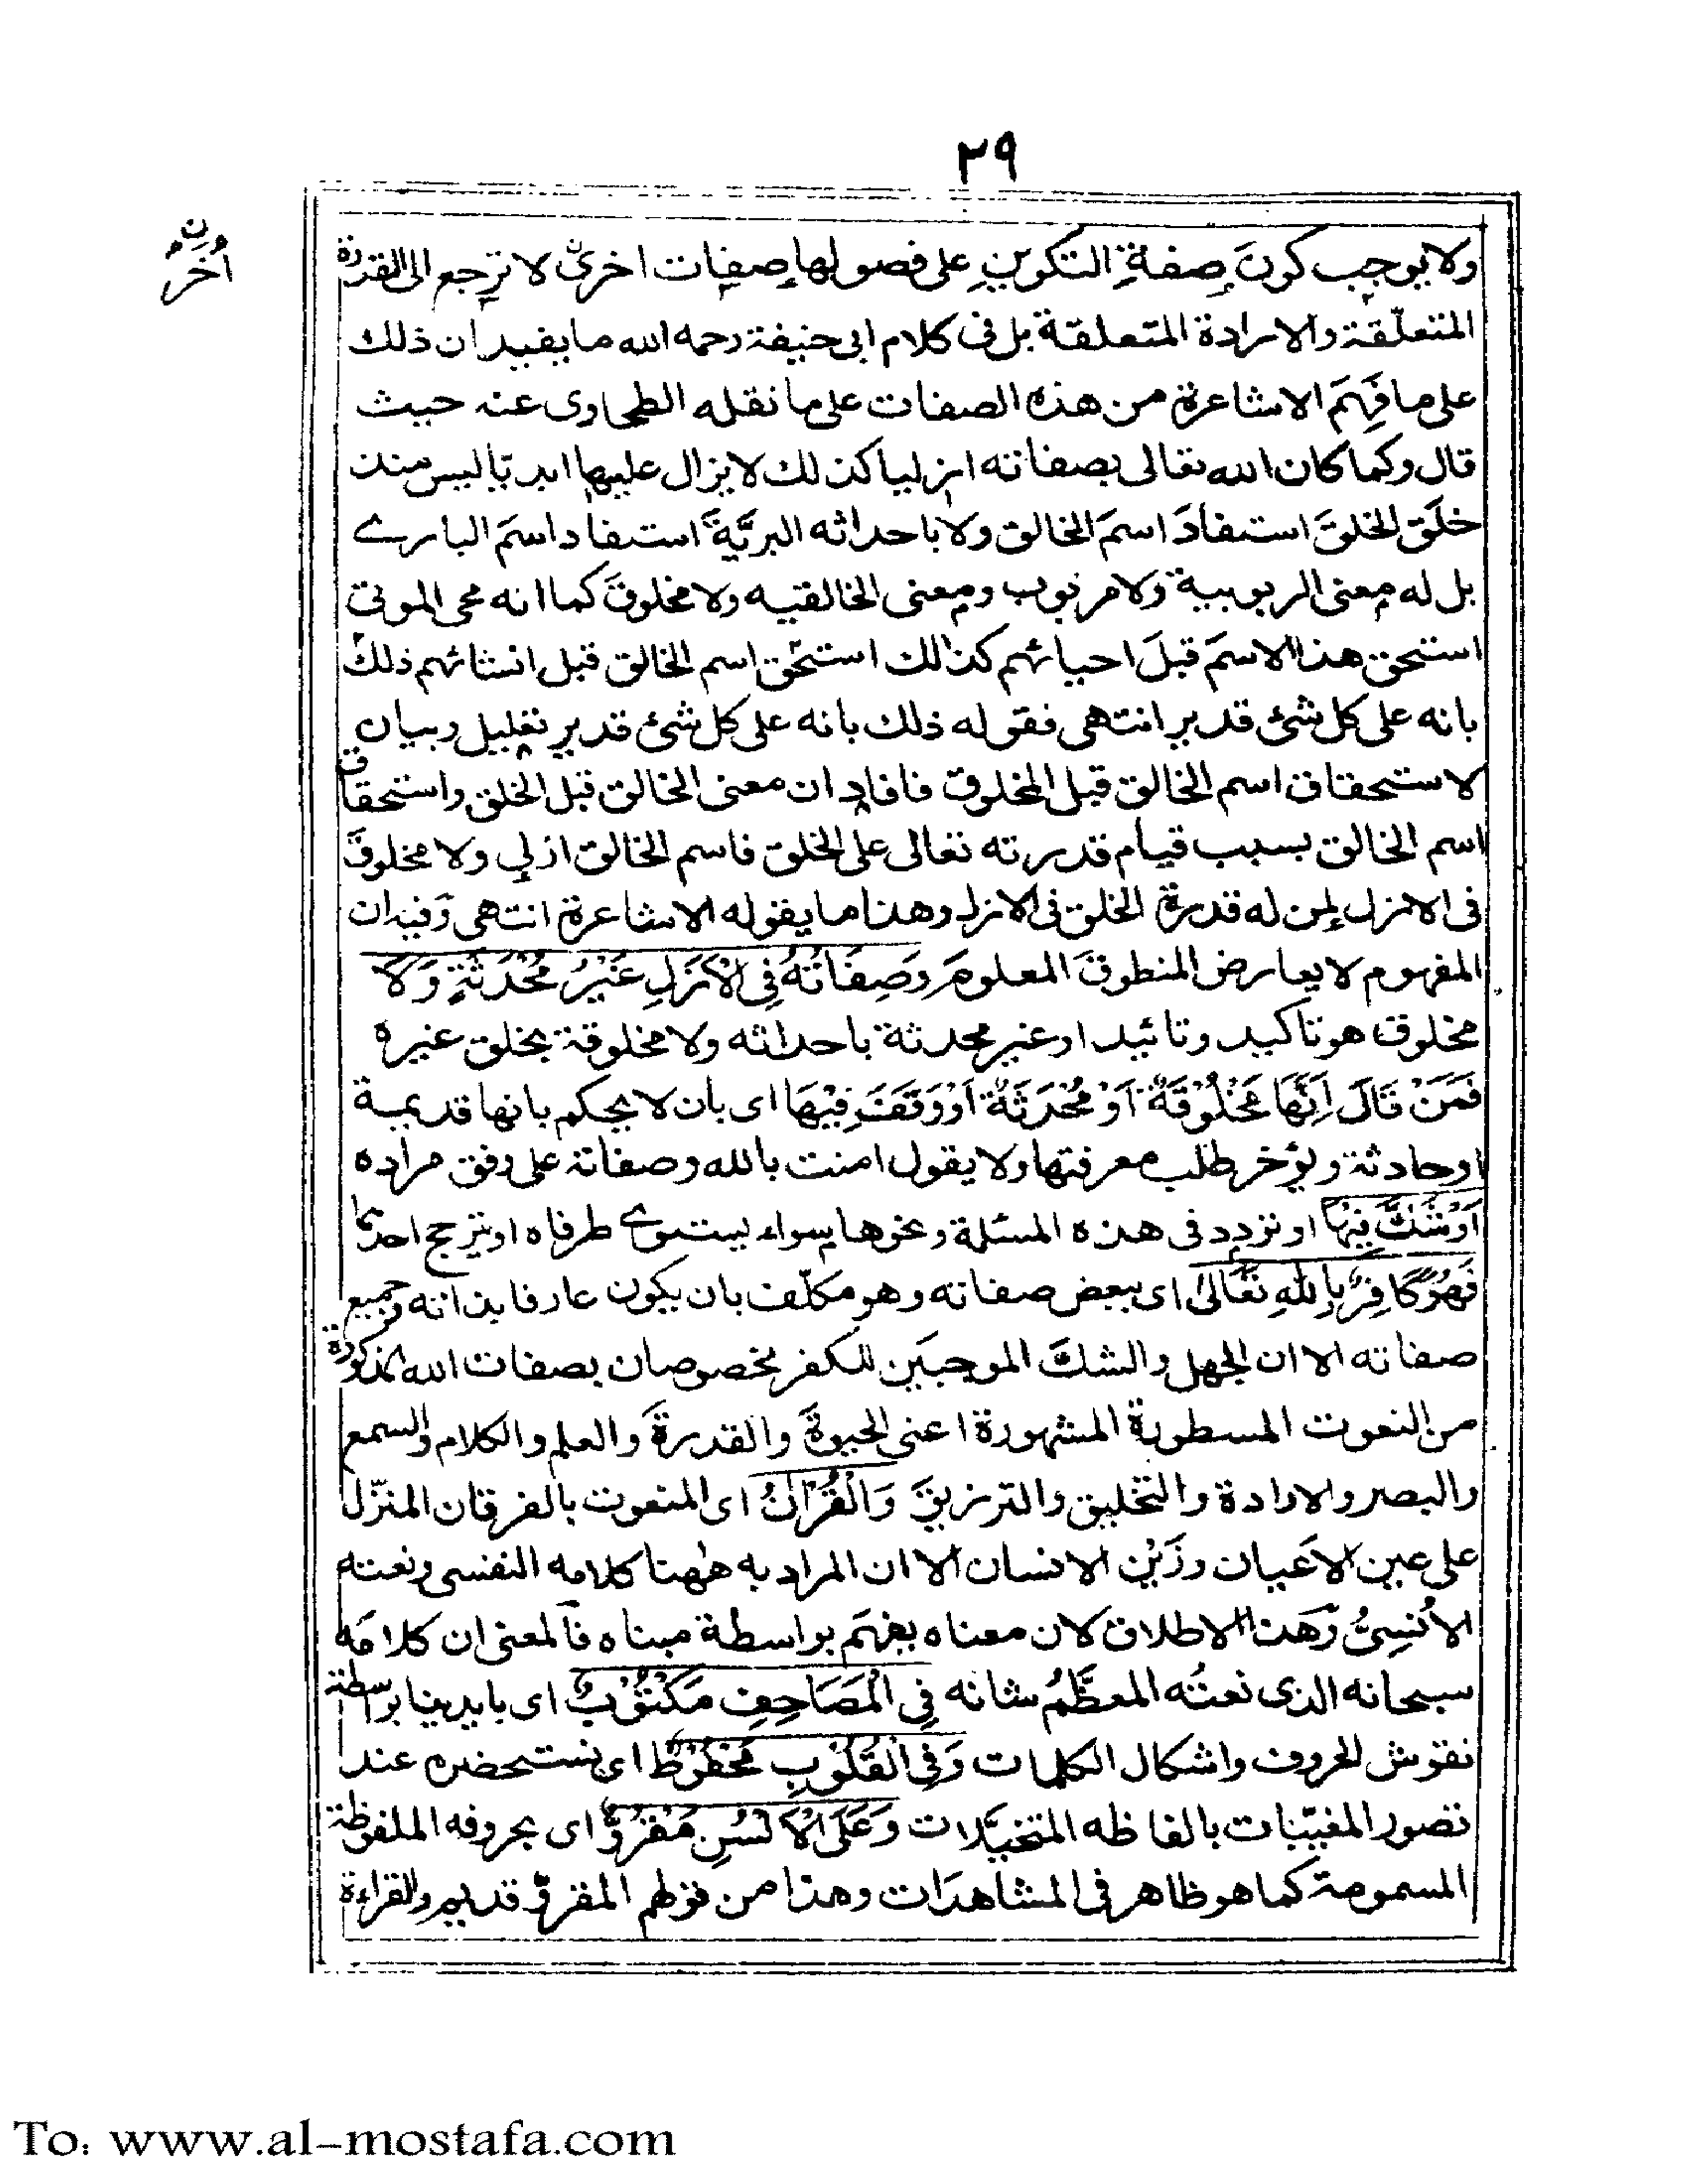 ٢٩
ولا يوجب كونَ صفةِ التكوينِ على فصولها صفات اخرى لا ترجع الى القدرة
ن
اُخَرُ
المتعلّقة والارادة المتعلقة بل فى كلام ابى حنيفة رحمه الله ما يفيد ان ذلك
على ما فَهِمَ الاشاعرة من هذه الصفات على ما نقله الطحاوى عنه حيث
قال وكما كان الله تعالى بصفاته ازليا كذلك لا يزال عليها ابديّا ليس منذ
خلَق الخلقَ استفادَ اسمَ الخالق ولا باحداثه البريَّةَ استفاد اسمَ البارے
بل له معنى الربوبية ولا مربوب ومعنى الخالقيه ولا مخلوقَ كما انه محى الموتى
استحق هذا الاسمَ قبلَ احيائهم كذالك استحَق اسم الخالق قبل انشائهم ذلك
بانه على كل شئ قدير انتهى فقوله ذلك بانه على كل شئ قدير تعليل وبيان
لاستحقاق اسم الخالق قبل المخلوق فافاد ان معنى الخالق قبل الخلق واستحقاق
اسم الخالق بسبب قيام قدرته تعالى على الخلق فاسم الخالق ازلي ولا مخلوقَ
فى الازل لمن له قدرة الخلق فى الازل وهذا ما يقوله الاشاعرة انتهى وفيه ان
المفهوم لا يعارض المنطوقَ المعلومَ وَصِفَاتُهُ فِى الْاَزَلِ غَيْرُ مُحْدَثَةٍ وَلَا
مخلوق هو تاكيد وتائيد او غير محدثة باحداثه ولا مخلوقة بخلق غيره
فَمَنْ قَالَ اِنَّهَا مَخْلُوْقَةٌ اَوْ مُحْدَثَةٌ اَوْ وَقَفَ فِيْهَا اى بان لا يحكم بانها قديمة
او حادثة ويؤخر طلب معرفتها ولا يقول امنت بالله وصفاته على وفق مراده
اَوْ شَكَّ فِيْهَا او تردد فى هذه المسئلة ونحوها سواء يستوے طرفاه او يترجح احدهما
فَهُوَ كَافِرٌ بِاللهِ تَعَالىٰ اى ببعض صفاته وهو مكلّف بان يكون عارفا بذاته وجميع
صفاته الا ان الجهل والشكَّ الموجبَين للكفر مخصوصان بصفات الله المذكورة
من النعوت المسطورة المشهورة اعنى الحيوةَ والقدرةَ والعلم والكلام والسمع
والبصر والارادة والتخليق والترزيقَ وَالْقُرْاٰنُ اى المنعوت بالفرقان المنزّل
على عين الاَعيان وزَيْن الانسان الا ان المراد به هٰهنا كلامه النفسى ونعته
الاُنسِىُّ وهذا الاطلاق لان معناه يفهَم بواسطة مبناه فالمعنى ان كلامَه
سبحانه الذى نعتُه المعظَّمُ شانه فِى الْمَصَاحِفِ مَكْتُوْبٌ اى بايدينا بواسطة
نقوش الحروف واشكال الكلمات وَفِى الْقُلُوْبِ مَحْفُوْظٌ اى نستحضره عند
تصور المغيّبات بالفاظه المتخيَّلات وَعَلَى الْاَلْسُنِ مَقْرُوٌّ اى بحروفه الملفوظة
المسموعة كما هو ظاهر فى المشاهدَات وهذا من قولهم المقروّ قديم والقراءة
To: www.al-mostafa.com